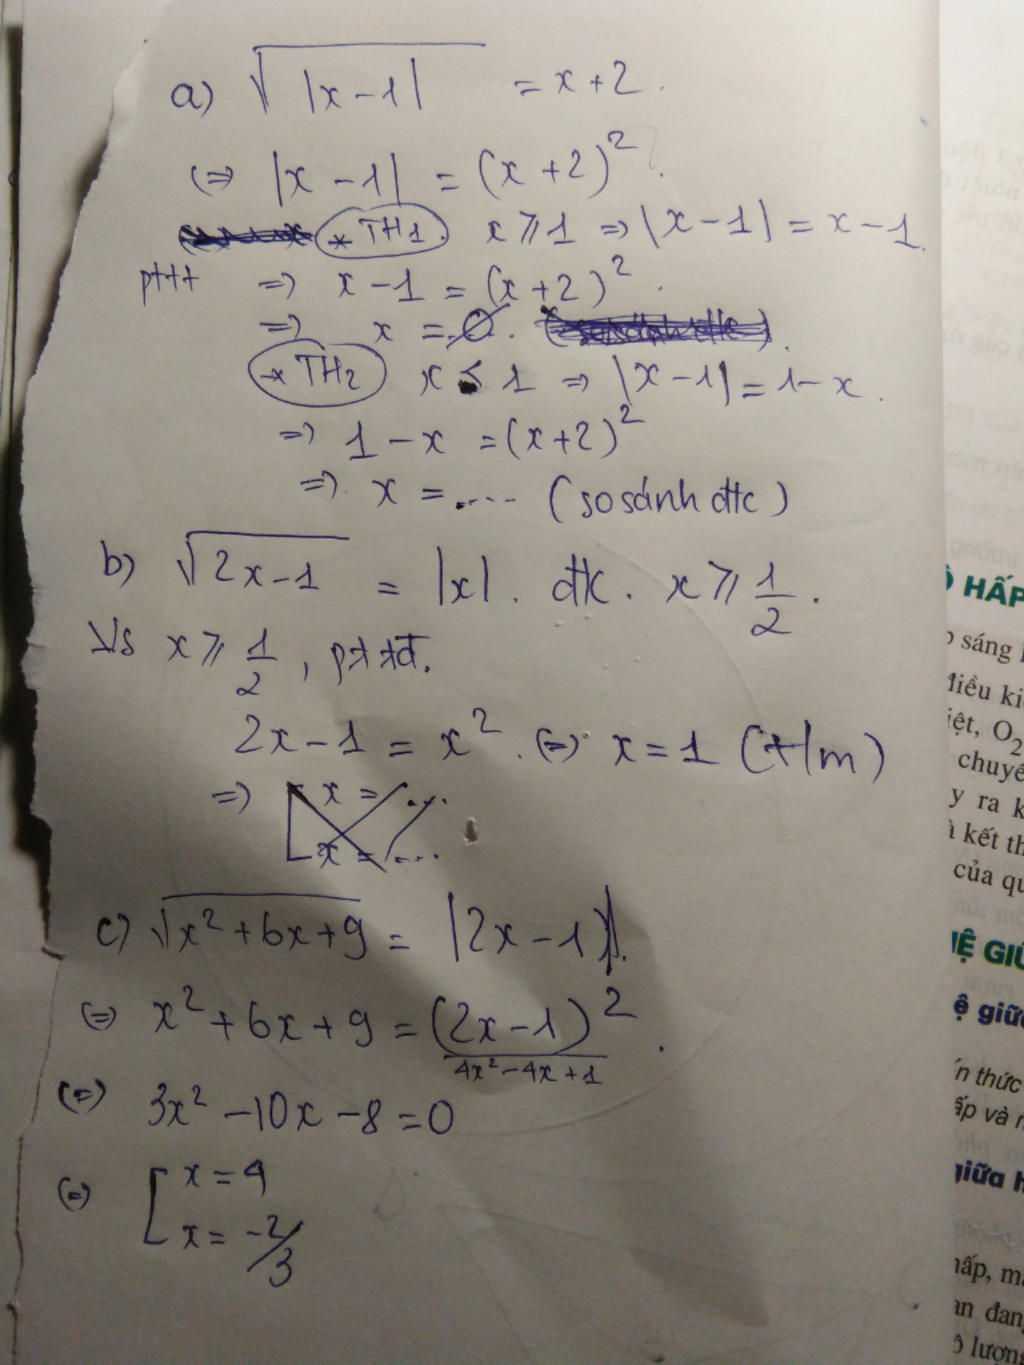 a) √|x-1| = x+2.
(=) |x-1| = (x+2)².
* TH1. x ⩾ 1 => |x-1| = x-1.
pttt => x-1 = (x+2)².
=> x = Ø.
* TH2 x < 1 => |x-1| = 1-x.
=> 1-x = (x+2)²
=> x = .... (so sánh đk)
b) √2x-1 = |x|. đk. x ⩾ 1/2.
Vs x ⩾ 1/2, pt tđ.
2x-1 = x². (=) x = 1 (t/m)
=> [ x = ...
x = ...
c) √x²+6x+9 = |2x-1|.
(=) x²+6x+9 = (2x-1)².
4x²-4x+1
(=) 3x²-10x-8=0
(=) [ x = 4
x = -2/3
Ô HẤP
sáng
Điều ki
iệt, O₂
chuyể
y ra k
à kết th
của qu
HỆ GIỮ
ệ giữa
n thức
ấp và
giữa h
hấp, m
an đang
ô lượn